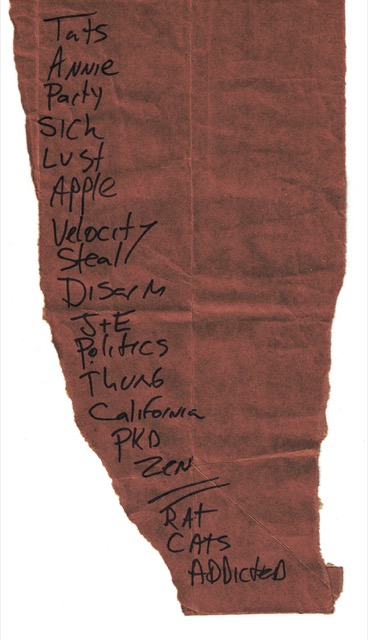 Tats
Annie
Party
Sick
Lust
Apple
Velocity
Steal
Disarm
J+E
Politics
Thumb
California
PKD
Zen
RAt
CAts
ADDicteD